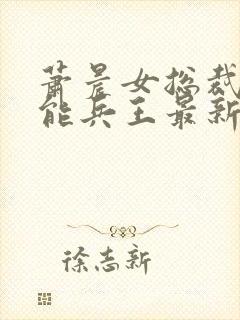 萧晨女总裁
能兵王最新
徐志新